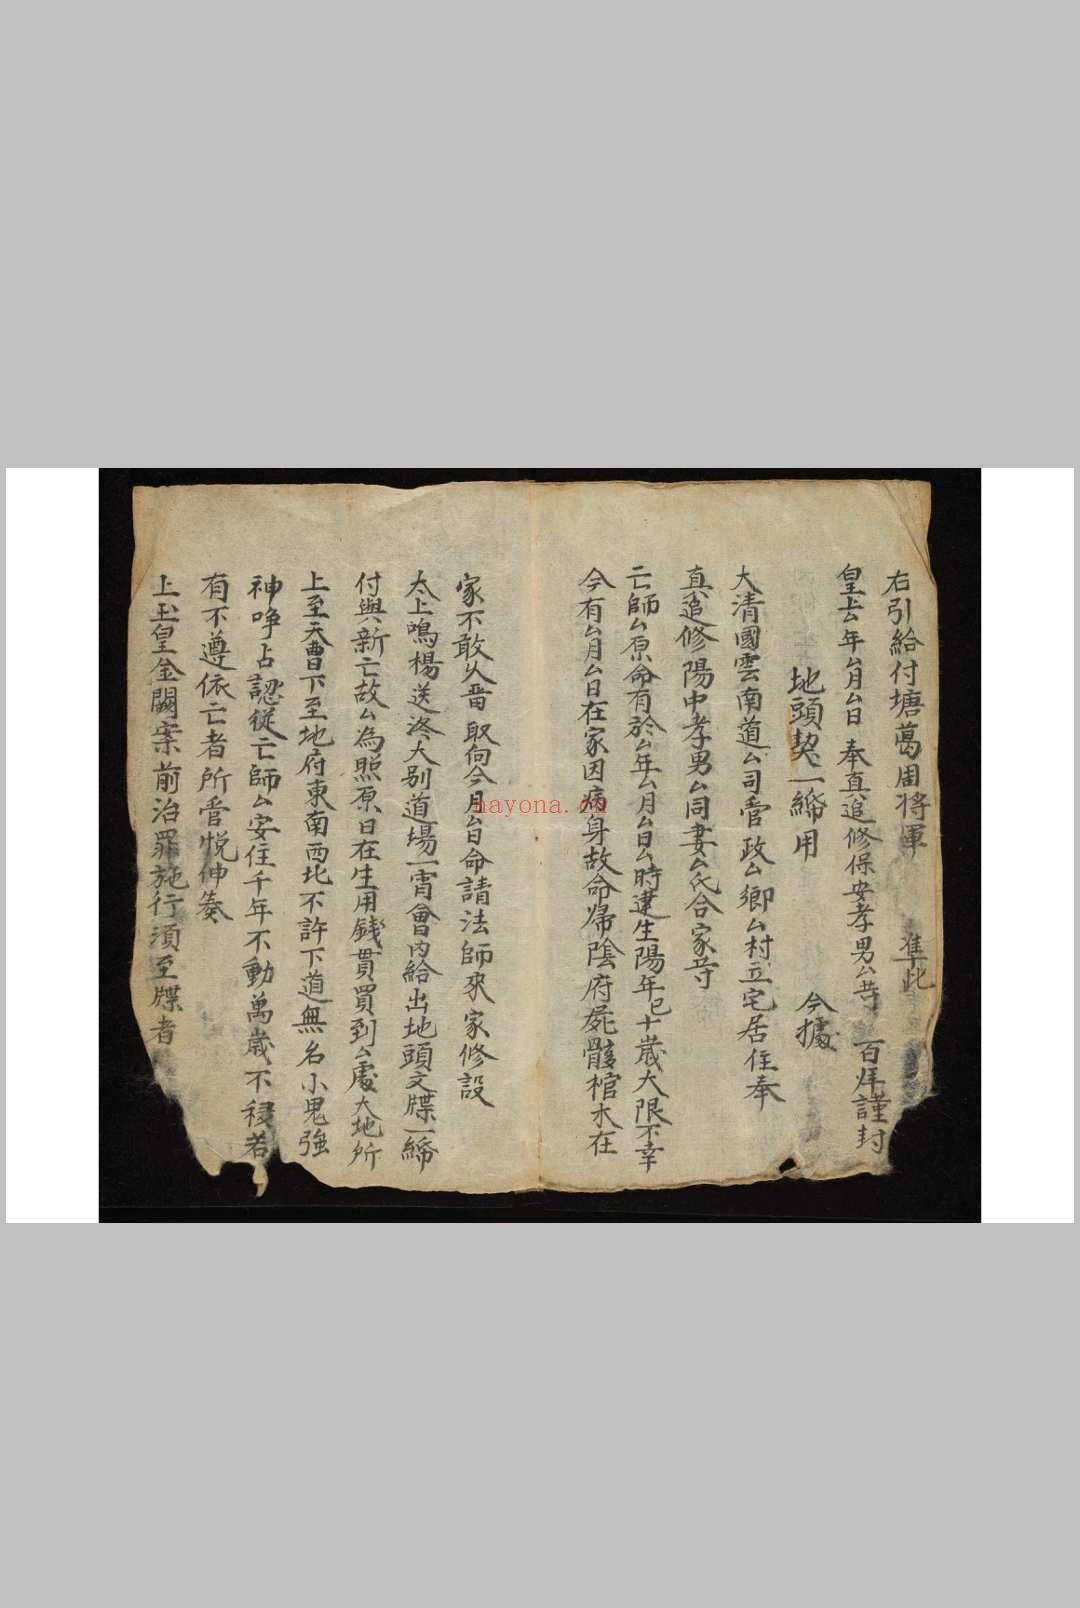 右引給付塘葛周將軍 準此
皇上厶年厶月厶日 奉真追修保安孝男厶等 百拜謹封
地頭契一締用 今據
大清國雲南道厶司管政厶鄉厶村立宅居住奉
真追修陽中孝男厶同妻厶氏合家等
亡師厶原命有於厶年厶月厶日厶時建生陽年已十歲大限不幸
今有厶月厶日在家因病身故命帰陰府屍骸棺木在
家不敢久畱 取向今月厶日命請法師來家修設
太上鳴楊送終大別道場一宵會內給出地頭文牒一締
付與新亡故厶為照原日在生用錢貫買到厶處大地所
上至天曹下至地府東南西北不許下道無名小鬼強
神啀占認從亡師厶安住千年不動萬歲不移若
有不遵依亡者所管悅伸奏
上玉皇金闕案前治罪施行須至牒者
nayona.cn